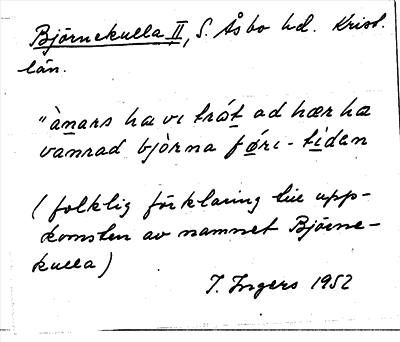 Björnekulla II, S. Åsbo hd. Krist.
län.
"ànars ha vi trót ad hær ha
vanrad bjòrna fǿri-tidan
(folklig förklaring till upp-
komsten av namnet Björne-
kulla)
I. Ingers 1952